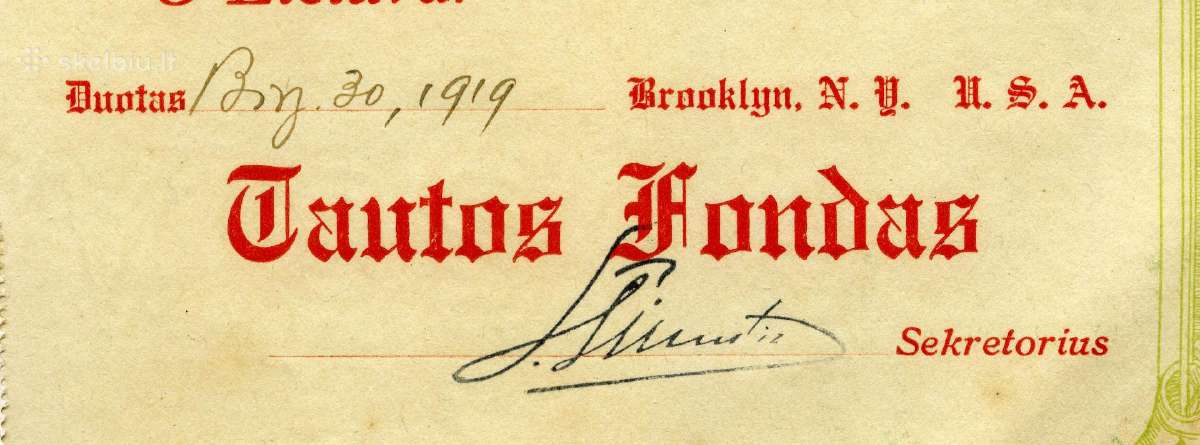 skelbiu.lt
Duotas Birz. 30, 1919 Brooklyn, N. Y. U. S. A.
Tautos Fondas
L. Šimutis Sekretorius